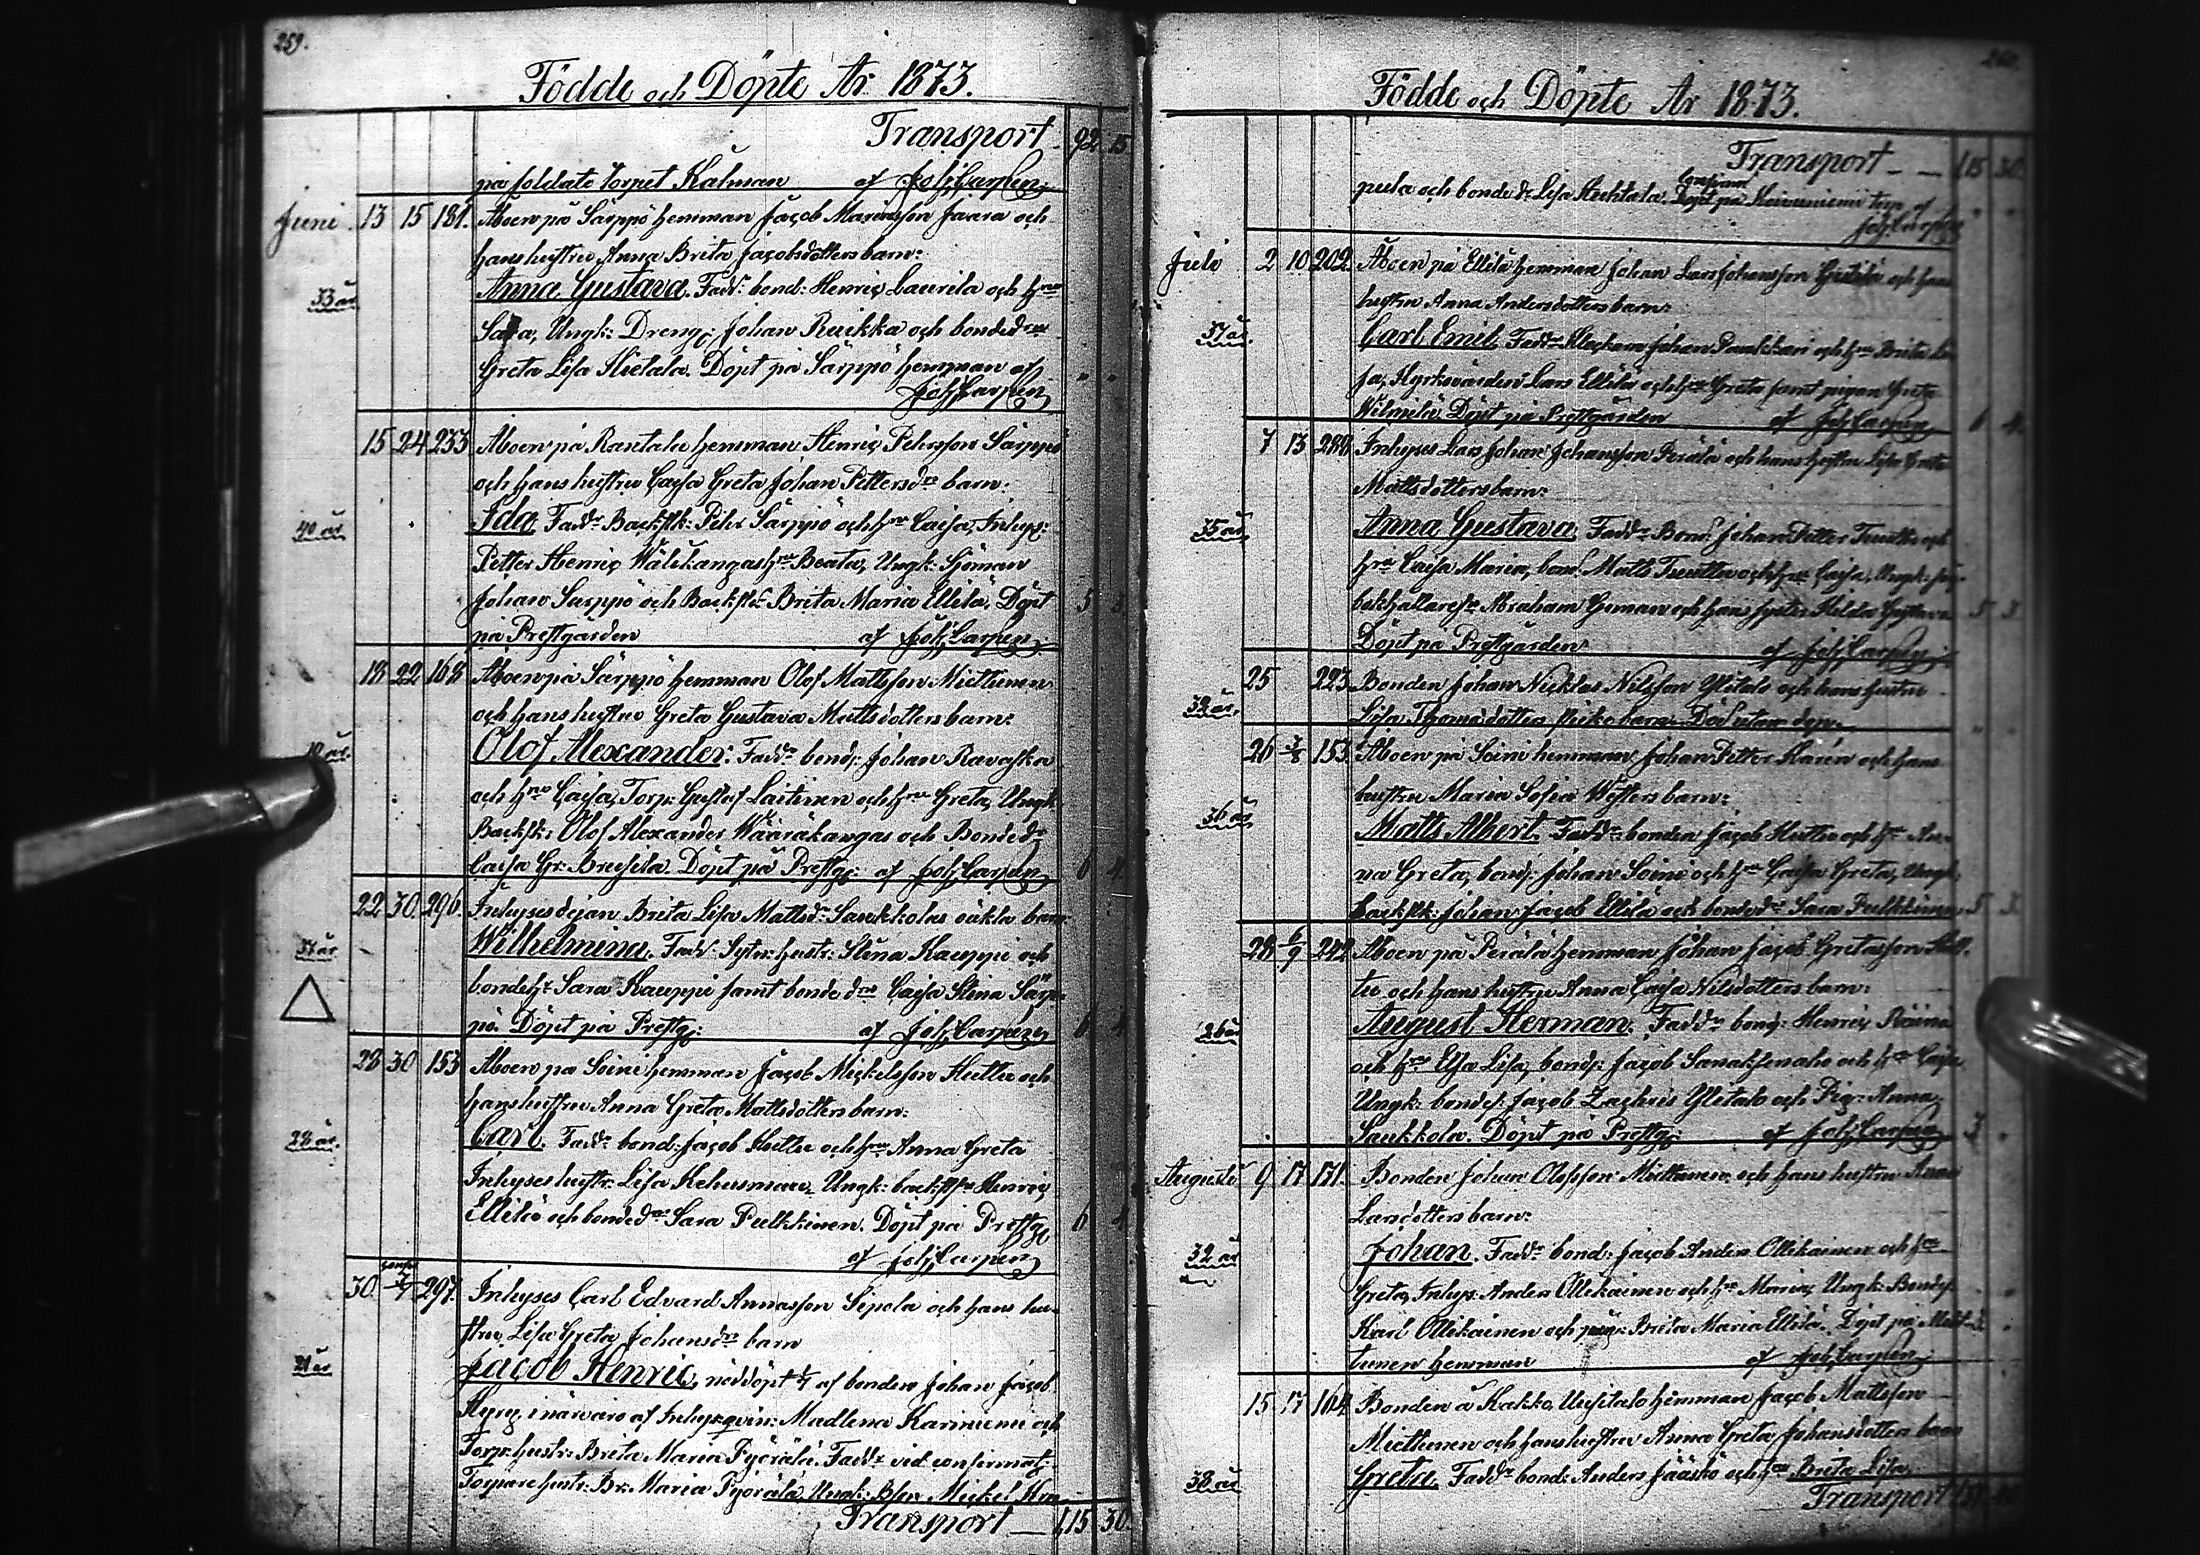 259.
Födde och Döpte År 1873.
Transport 92 15
på soldats torpet Kalman af Joh. Carpen
Juni 13 15 181. Åboen på Särppö hemman Jacob Mariasson Jaara och
hans hustru Anna Brita Jacobsdotters barn:
33 år Anna Gustava. Fadd: bond: Henric Laurila och hru
Sara, Ungk: Dreng: Johan Ruikka och bonded
Greta Lisa Hietala. Döpt på Särppö hemman af
Joh. Carpen
15 24 233 Åboen på Rantala hemman Henric Pehrsson Särppö
och hans hustru Cajsa Greta Johan Petters dr barn:
40 år Ida. Fadd: Backstk: Pehr Särppö och hru Caisa, Inhys:
Petter Henric Wälikangas hru Beata, Ungk: Sjöman
Johan Särppö och Backst Brita Maria Ellilä. Döpt 5 3
på Prestgården af Joh. Carpen
18 22 168 Åboen på Särppö hemman Olof Mattsson Miettunen
och hans hustru Greta Gustava Mattsdotters barn:
Olof Alexander. Fadd: bond: Johan Ravaska
och hru Cajsa, Torp: Gustaf Laitinen och hru Greta, Ungk
Backstk: Olof Alexander Wääräkangas och Bonded
Caisa Gr: Breilila. Döpt på Prestg: af Joh. Carpen 6 4
22 30 296. Inhysesdejan Brita Lisa Mattsd: Saukkolas oäkta barn
37 år Wilhelmina. Fadd: Sytn: hustr: Stina Kauppi och
bondeh: Sara Kauppi samt bonde dr Cajsa Stina Särp-
pö. Döpt på Prestg: af Joh. Carpen 6 4
28 30 153 Åboen på Soini hemman Jacob Mickelsson Huttu och
hans hustru Anna Greta Mattsdotters barn:
28 år. Carl. Fadd: bond: Jacob Huttu och hru Anna Greta
Inhyses hustr: Lisa Kehusmaa, Ungk: backst Henric
Ellilä och bonded: Sara Pulkkinen. Döpt på Prestg 6 4
af Joh. Carpen
30. 297. Inhyses Carl Edvard Annasson Sipola och hans hu-
stru Lisa Greta Johansdr barn
21 år Jacob Henric, nöddöpt af bonden Johan Jacob
i närvaro af Inhysqvin: Madlena Karinieme och
Torp: hustr: Brita Maria Pyörälä. Fadd: vid confirmat:
Torpare hustr: Br: Maria Pyörälä, Ungk: Bson Mickel
Transport 115 30.
260.
Födde och Döpte År 1873.
Transport 115 30.
pula och bonde dr Lisa Huhtala. Döpt på Kaineniemi torp af
Joh. Carpen
Juli 2 10 202. Åboen på Ellilä hemman Johan Lars Johansson och hans
hustru Anna Andersdotters barn:
37 år. Carl Emil. Fadd: Klockaren Johan Paukkeri och hru Brita Li-
sa, Kyrkovärden Lars Ellilä och hru Greta samt pigan Greta
Döpt på Prestgården af Joh. Carpen 6 4.
7 13 288 Inhyses Lars Johan Johansson Perälä och hans hustru Lisa Greta
Mattsdotters barn:
35 år. Anna Gustava. Fadd: Bond: Johan Petter Tuuttu och
hru Caisa Maria, bond: Matts Tuuttu och hru Cajsa, Ungk:
bokhållare Abraham och hans syster Hilda Gustava 5 3.
Döpt på Prestgården af Joh. Carpen
25 223. Bonden Johan Nicklas Nilsson Ylitalo och hans hustru
38 år. Lisa Thomasdotters flicke barn. Död utan dop.
26 153. Åboen på Soini hemman Johan Petter Karén och hans
hustru Maria Sofia Westers barn:
36 år Matts Albert. Fadd: bonden Jacob Huttu och hru An-
na Greta, bond: Johan Soini och hru Caisa Greta, Ungk:
backstk: Johan Jacob Ellilä och bonded Sara Pulkkinen 5 3.
28 6/9 242 Åboen på Perälä hemman Johan Jacob Gretasson
och hans hustru Anna Cajsa Nilsdotters barn:
26 år August Herman. Fadd: bond: Henric Räinä
och hru Elsa Lisa, bond: Jacob Sanaksenaho och hru Cajsa
Ungk: bond: Jacob Zachris Ylitalo och Pig: Anna
Saukkola. Döpt på Prestg: af Joh. Carpen 3
Augusti 9 17 171. Bonden Johan Olofsson Miettunen och hans hustru Anna
Larsdotters barn:
32 år Johan. Fadd: bond: Jacob Anders Ollikainen och hru
Greta, Inhys: Anders Ollikainen och hru Maria, Ungk: Bond:
Karl Ollikainen och pig: Brita Maria Ellilä. Döpt på Miet-
tunen hemman af Joh. Carpen
15 17 164 Bonden å Kakko Uusitalo hemman Jacob Mattsson
Miettunen och hans hustru Anna Greta Johansdotters barn
38 år Greta. Fadd: bond: Anders Jääskö och hru Brita Lisa
Transport